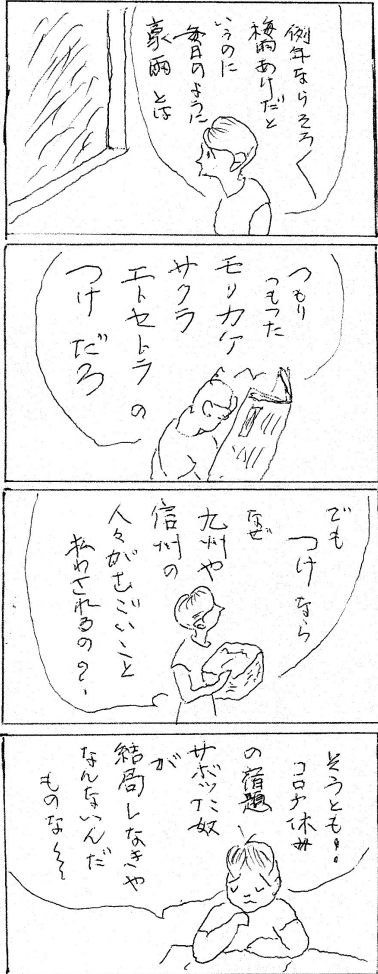 例年ならそろ〱
梅雨あけだと
いうのに
毎日のように
豪雨とは
つもり
つもった
モリカケ
サクラ
エトセトラの
つけだろ
でも
つけなら
なぜ
九州や
信州の
人々がむごいこと
払わされるの?
そうとも!
コロナ休み
の宿題
サボッた奴
が
結局しなきゃ
なんないんだ
ものな〜